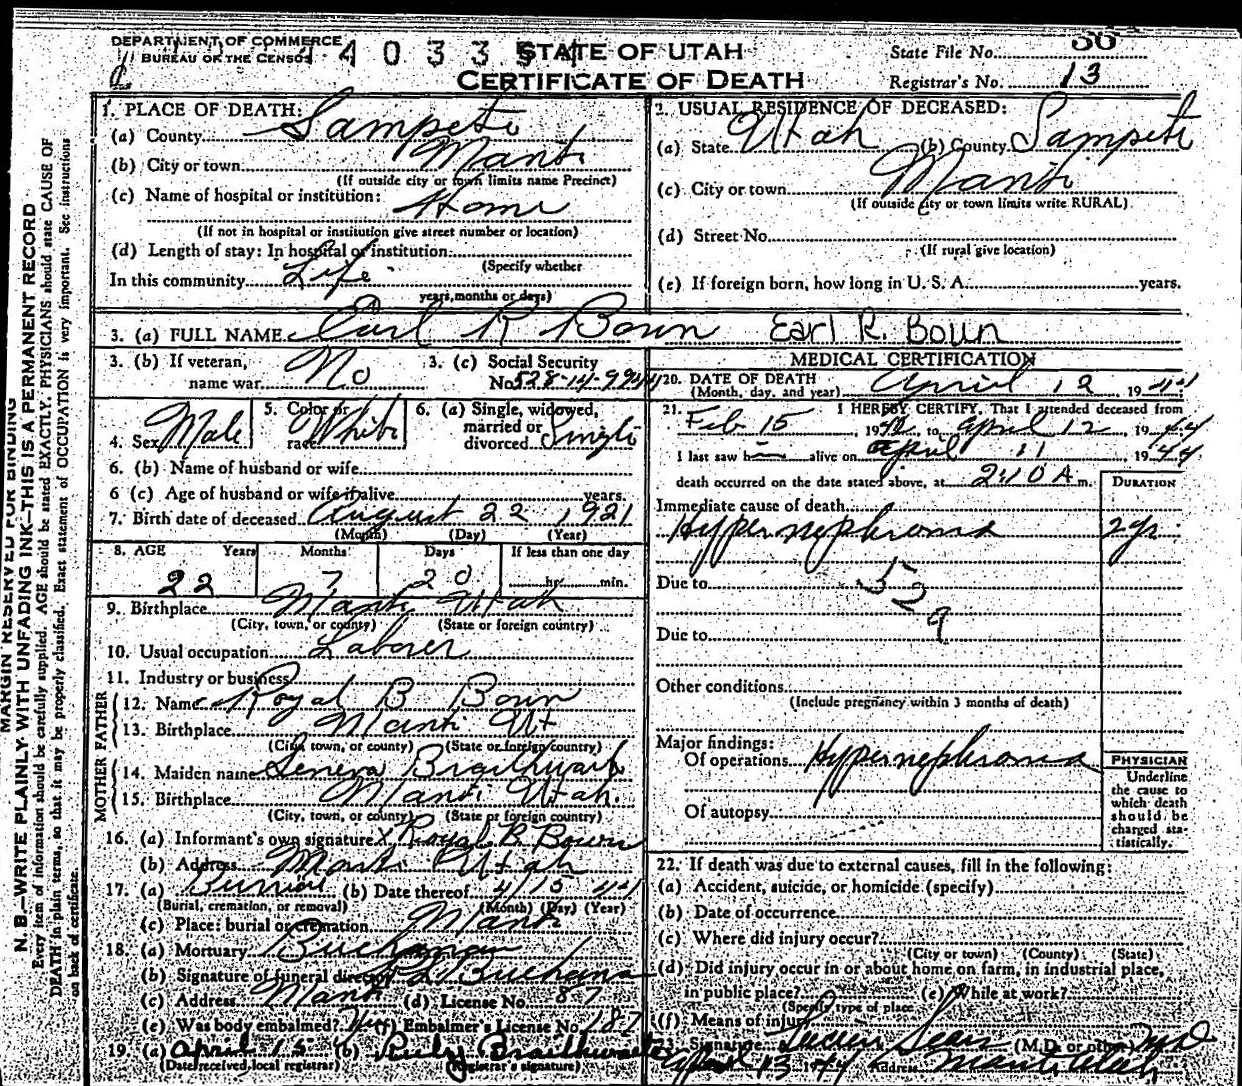 DEPARTMENT OF COMMERCE
BUREAU OF THE CENSUS
4 0 3 3 5
STATE OF UTAH
CERTIFICATE OF DEATH
State File No. 36
Registrar's No. 13
1. PLACE OF DEATH:
(a) County Sampete
(b) City or town Manti
(If outside city or town limits name Precinct)
(c) Name of hospital or institution: Home
(If not in hospital or institution give street number or location)
(d) Length of stay: In hospital or institution:
(Specify whether
In this community Life
years, months or days)
2. USUAL RESIDENCE OF DECEASED:
(a) State Utah (b) County Sampete
(c) City or town Manti
(If outside city or town limits write RURAL)
(d) Street No.
(If rural give location)
(e) If foreign born, how long in U. S. A. years.
3. (a) FULL NAME Earl R Bown Earl R. Bown
3. (b) If veteran,
name war No
3. (c) Social Security
No. 528-14-9944
4. Sex Male
5. Color or
race White
6. (a) Single, widowed,
married or
divorced Single
6. (b) Name of husband or wife
6 (c) Age of husband or wife if alive years.
7. Birth date of deceased August 22 1921
(Month) (Day) (Year)
8. AGE Years Months Days If less than one day
22 7 20 hr. min.
9. Birthplace Manti Utah
(City, town, or county) (State or foreign country)
10. Usual occupation Laborer
11. Industry or business
FATHER
12. Name Royal B Bown
13. Birthplace Manti Ut
(City, town, or county) (State or foreign country)
MOTHER
14. Maiden name Seneva Braithwaite
15. Birthplace Manti Utah.
(City, town, or county) (State or foreign country)
16. (a) Informant's own signature X Royal B Bown
(b) Address Manti Utah
17. (a) Burrial (b) Date thereof 4/15 44
(Burial, cremation, or removal) (Month) (Day) (Year)
(c) Place: burial or cremation Manti
18. (a) Mortuary Buchanan
(b) Signature of funeral director Buchanan
(c) Address Manti (d) License No. 87
(e) Was body embalmed? (f) Embalmer's License No. 187
19. (a) April 15 (b) Ruby Braithwaite
(Date received, local registrar) (Registrar's signature)
MEDICAL CERTIFICATION
20. DATE OF DEATH
(Month, day, and year) April 12 1944
21. I HEREBY CERTIFY, That I attended deceased from
Feb 15, 1942, to April 12, 1944
I last saw h alive on April 11, 1944
death occurred on the date stated above, at 2:10 A m.
DURATION
Immediate cause of death
Hypernephroma 2 yr
Due to
529
Due to
Other conditions
(Include pregnancy within 3 months of death)
Major findings:
Of operations Hypernephroma
Of autopsy
PHYSICIAN
Underline
the cause to
which death
should be
charged sta-
tistically.
22. If death was due to external causes, fill in the following:
(a) Accident, suicide, or homicide (specify)
(b) Date of occurrence
(c) Where did injury occur?
(City or town) (County) (State)
(d) Did injury occur in or about home on farm, in industrial place,
in public place? (e) While at work?
(Specify type of place)
(f) Means of injury
23. Signature Lucien Sears (M.D. or other) MD
April 13 1944 Address Manti Utah
MARGIN RESERVED FOR BINDING
N. B.—WRITE PLAINLY WITH UNFADING INK—THIS IS A PERMANENT RECORD
Every item of information should be carefully supplied. AGE should be stated EXACTLY. PHYSICIANS should state CAUSE OF
DEATH in plain terms, so that it may be properly classified. Exact statement of OCCUPATION is very important. See instructions
on back of certificate.